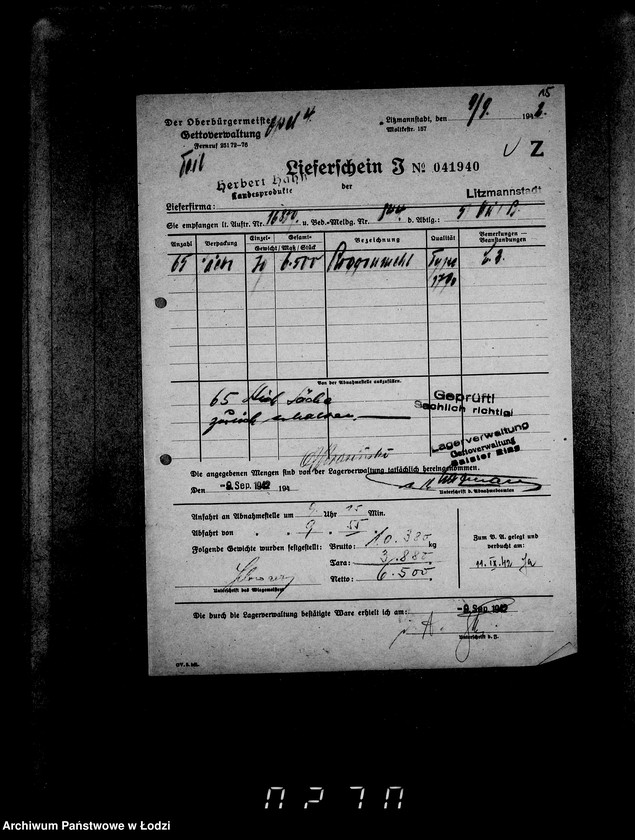 15
Der Oberbürgermeister
Gettoverwaltung
Fernruf 25172–76
Litzmannstadt, den 9/9. 1942.
Moltkestr. 157
Z
Lieferschein J № 041940
Herbert Hahn
Landesprodukte
der
Litzmannstadt
Lieferfirma:
Sie empfangen lt. Auftr. Nr. 16370 u. Bed.-Meldg. Nr. d. Abtlg.:
Anzahl Verpackung Einzel- Gesamt- Gewicht/Maß/Stück Bezeichnung Qualität Bemerkungen — Beanstandungen
65 70 6.500 Roggenmehl Type
1790
Von der Abnahmestelle auszufüllen.
65 Säcke
zurück erhalten.
Geprüft!
Sachlich richtig!
Lagerverwaltung
Gettoverwaltung
Die angegebenen Mengen sind von der Lagerverwaltung tatsächlich hereingenommen.
Den -9. Sep. 1942 194
Unterschrift d. Abnahmebeamten
Anfahrt an Abnahmestelle um 9 Uhr 15 Min.
Abfahrt von " " 9 " 55 "
Folgende Gewichte wurden festgestellt: Brutto: 10.380 kg
Tara: 3.880
Netto: 6.500
Zum B. A. gelegt und verbucht am:
11. IX. 42
Unterschrift des Wiegemeisters
Die durch die Lagerverwaltung bestätigte Ware erhielt ich am: -9. Sep. 1942
Archiwum Państwowe w Łodzi